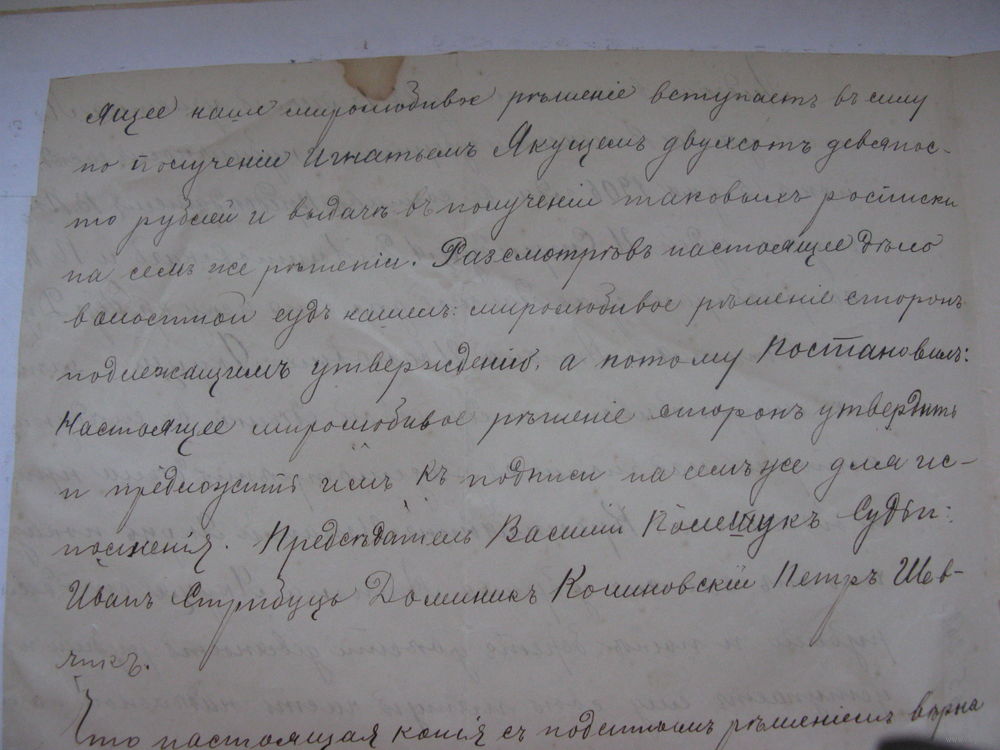 ящее наше миролюбивое рѣшеніе вступаетъ въ силу
по полученіи Игнатьемъ Якущемъ двухсотъ девянос-
то рублей и выдачѣ въ полученіи таковыхъ росписки
на семъ же рѣшеніи. Разсмотрѣвъ настоящее дѣло
волостной судъ нашелъ: миролюбивое рѣшеніе сторонъ
подлежащимъ утвержденію, а потому Постановилъ:
Настоящее миролюбивое рѣшеніе сторонъ утвердить
и предложить имъ къ подписи на семъ же для ис-
полненія. Предсѣдатель Василій Колещукъ Судьи:
Иванъ Стрибуцо Доминикъ Копиновскій Петръ Шев-
чикъ.
Что настоящая копія съ подлиннымъ рѣшеніемъ вѣрна